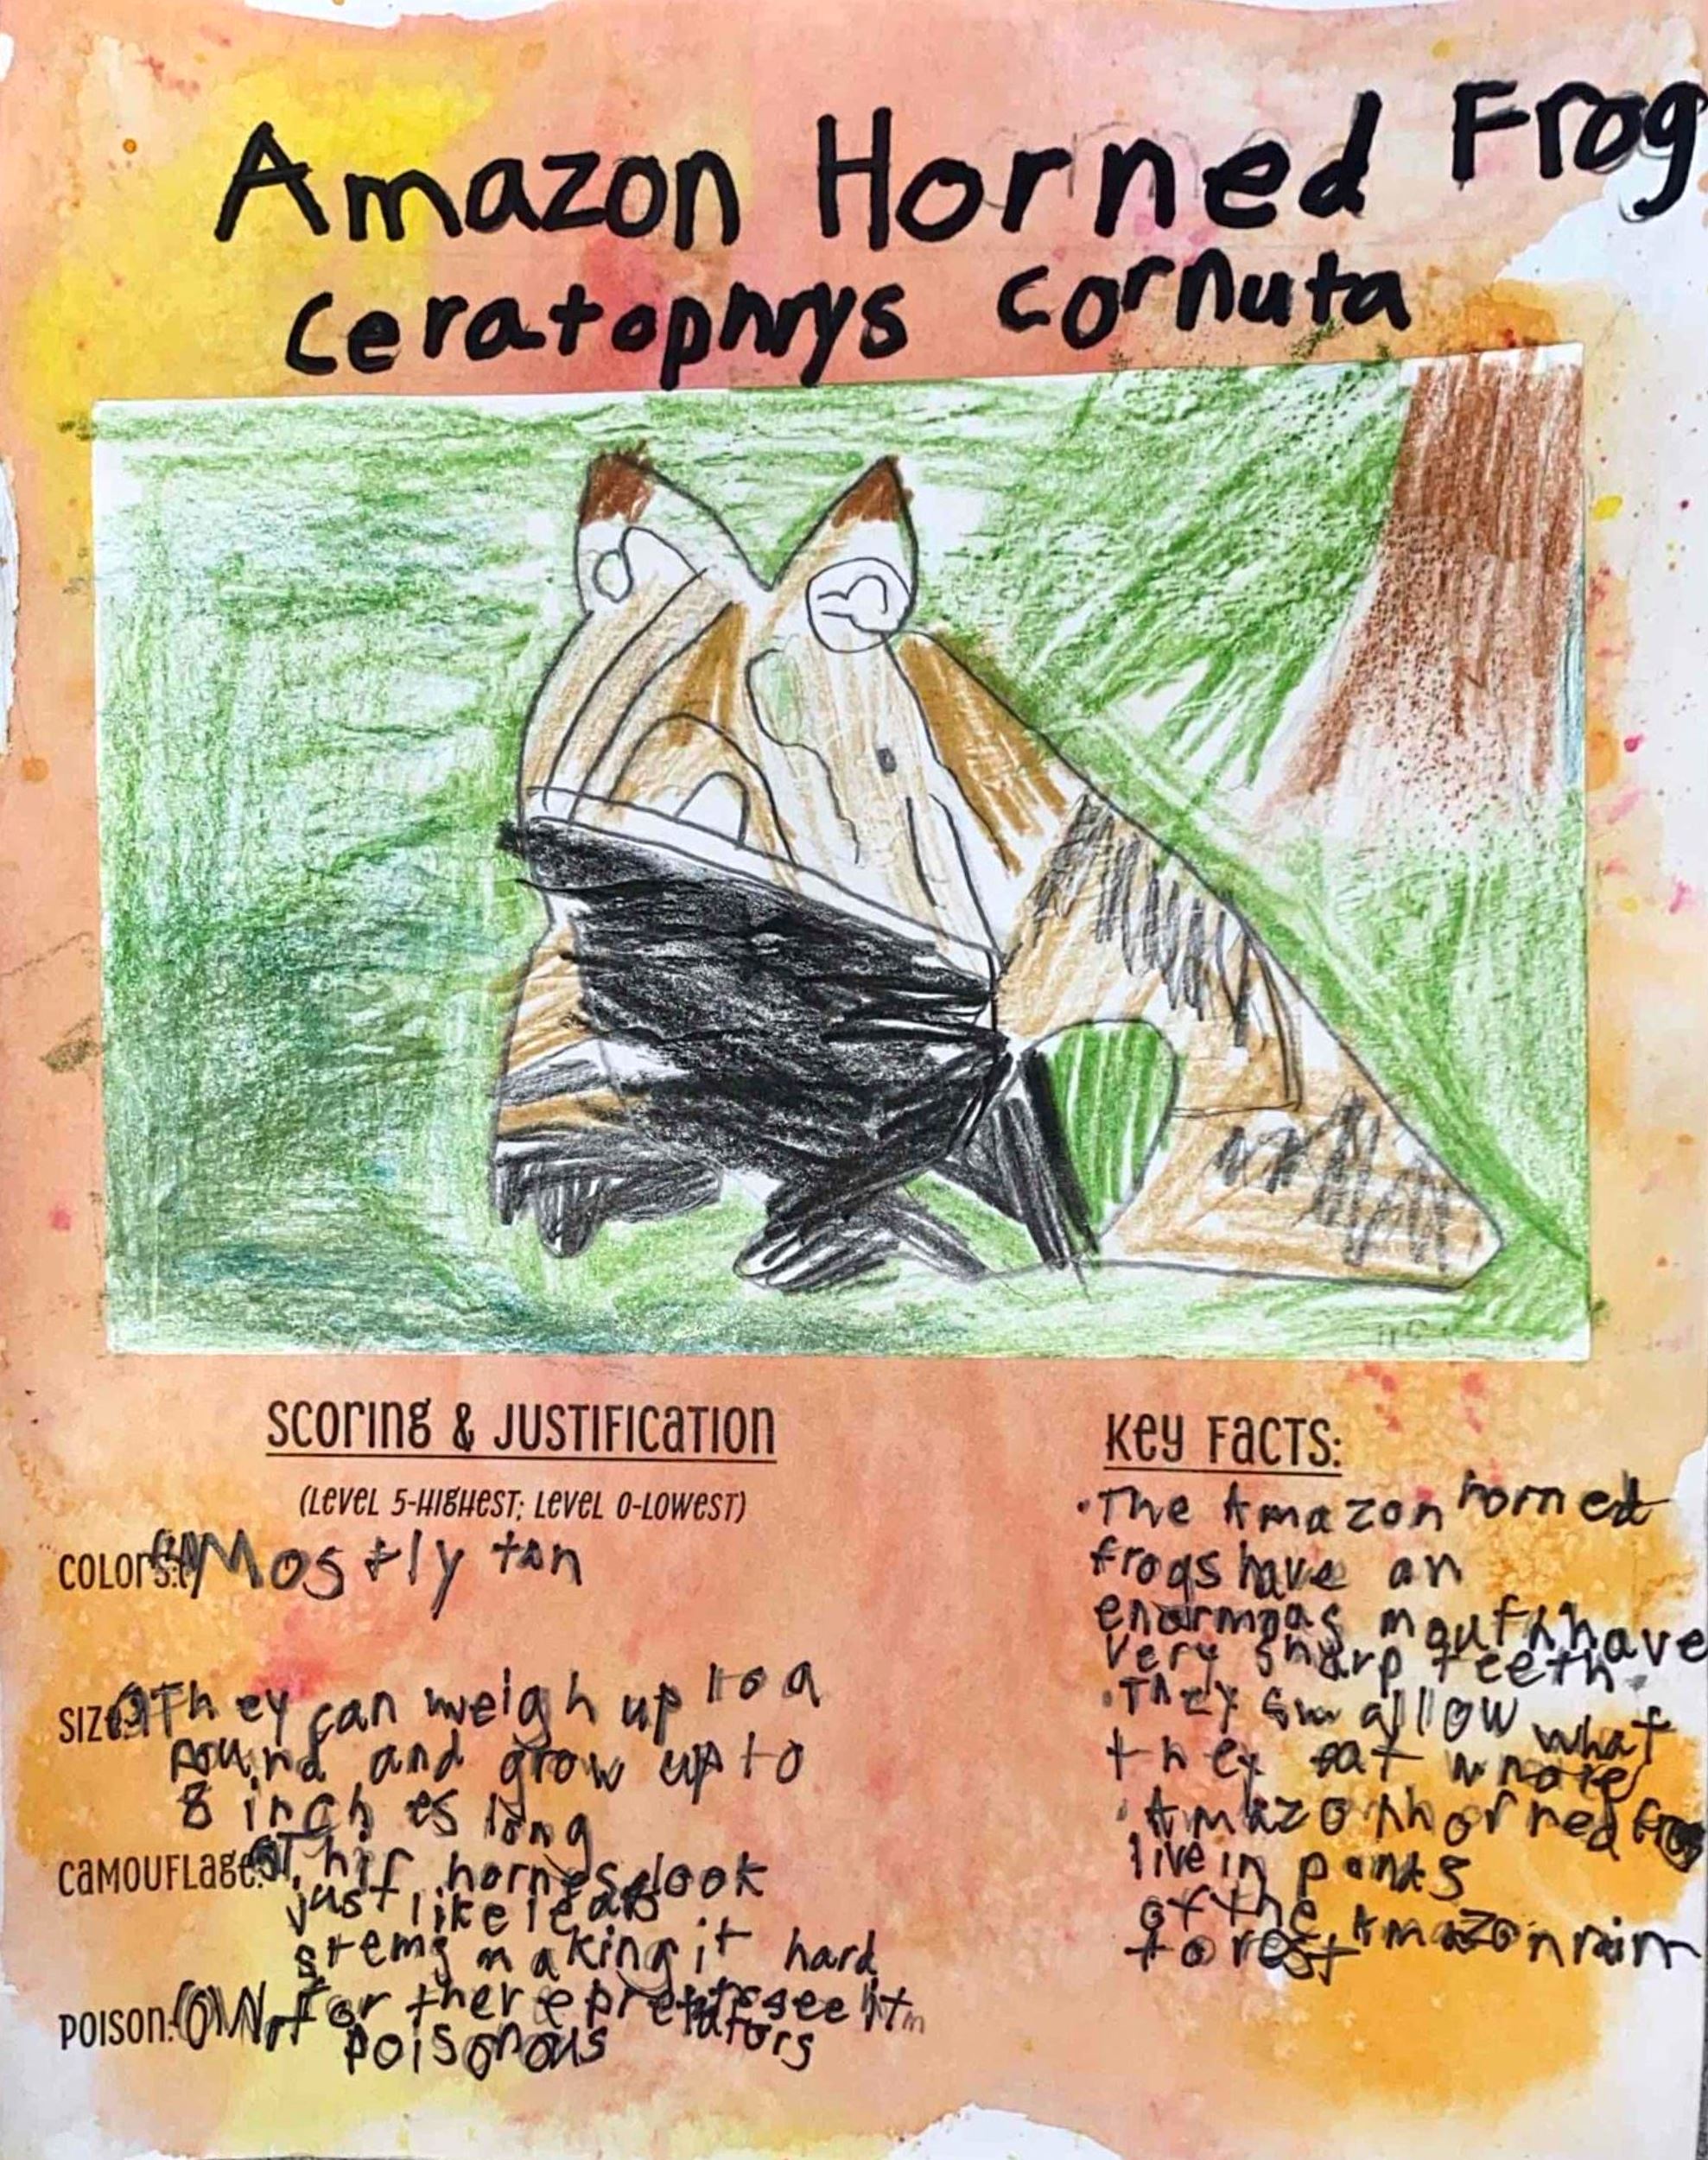 Amazon Horned Frog
Ceratophrys cornuta
SCORING & JUSTIFICATION
(LEVEL 5-HIGHEST; LEVEL 0-LOWEST)
COLORS: Mostly tan
SIZE: They can weigh up to a
pound and grow up to
8 inches long
CAMOUFLAGE: hornes look
just like
stems making it hard
for there see it
predators
POISON: (0) Not
poisonous
KEY FACTS:
• The Amazon horned
frogs have an
enormoas mouth have
very sharp teeth
• They swallow what
they eat whole
• Amazon horned frog
live in parts
of the Amazon rain
forest